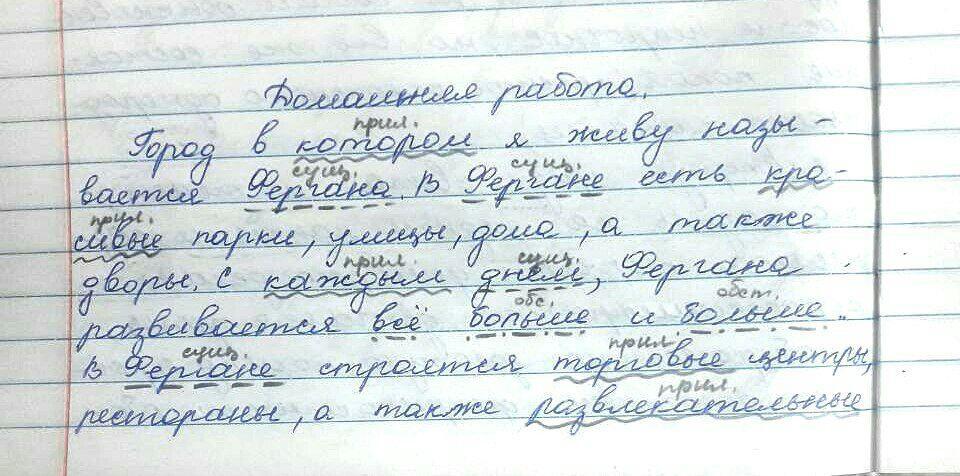 Домашняя работа.
прил.
Город в котором я живу назы-
сущ. сущ.
вается Фергана. В Фергане есть кра-
прил.
сивые парки, улицы, дома, а также
прил. сущ.
дворы. С каждым днем, Фергана
обс. обст.
развивается всё больше и больше.
сущ. прил
В Фергане строятся торговые центры,
прил.
рестораны, а также развлекательные